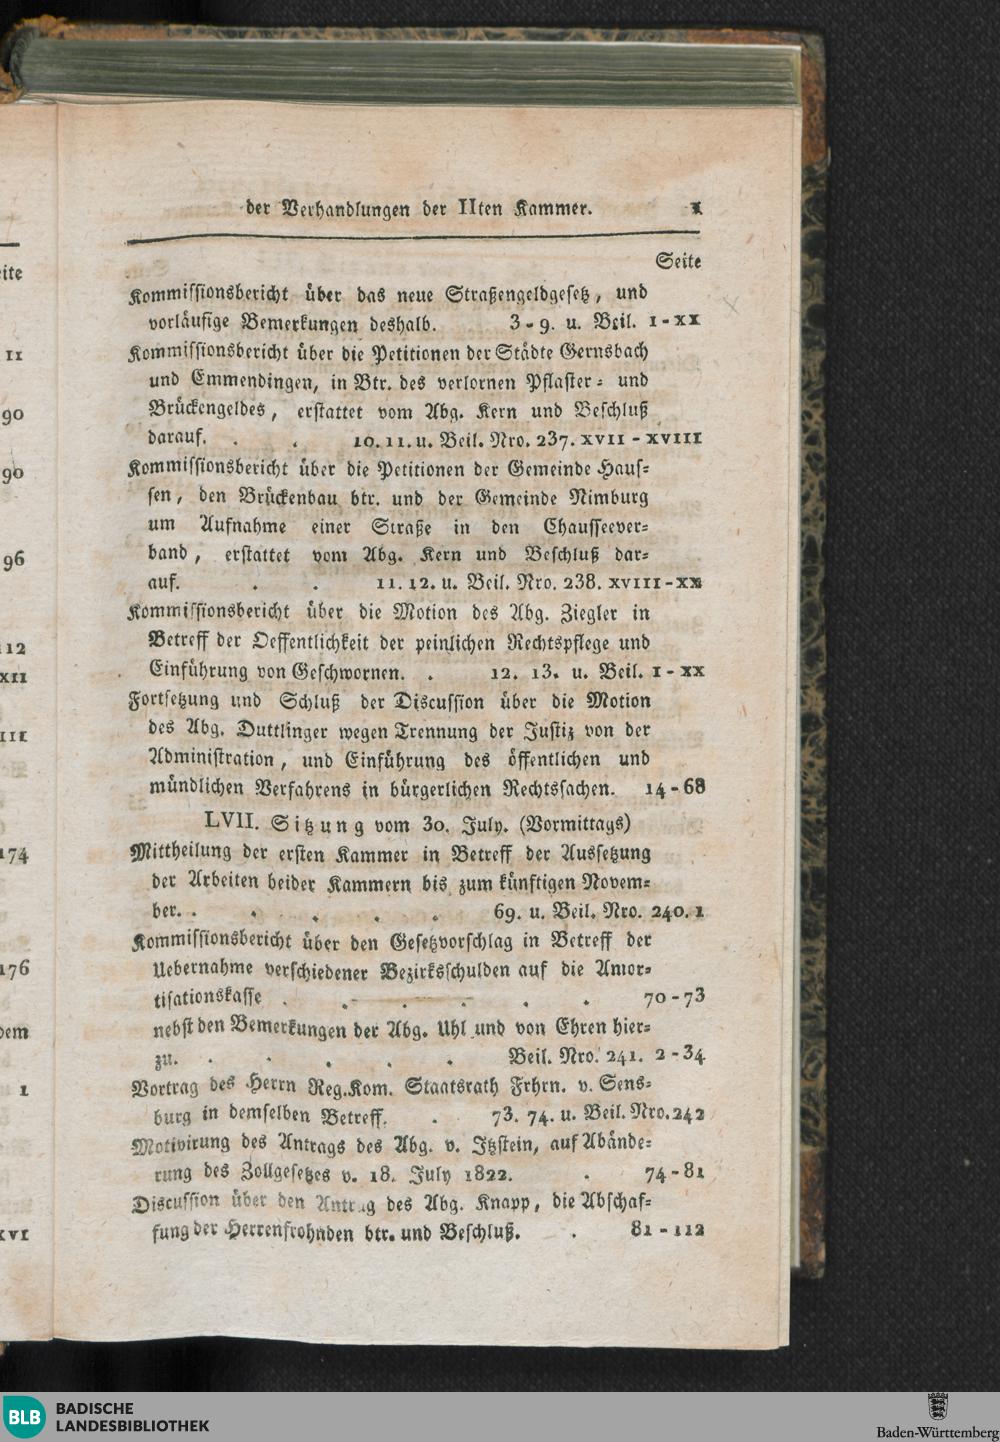 der Verhandlungen der IIten Kammer.
Seite
Kommissionsbericht über das neue Straßengeldgesetz, und
vorläufige Bemerkungen deshalb. 3-9. u. Beil. I-XX
Kommissionsbericht über die Petitionen der Städte Gernsbach
und Emmendingen, in Btr. des verlornen Pflaster- und
Brückengeldes, erstattet vom Abg. Kern und Beschluß
darauf. . . 10. 11. u. Beil. Nro. 237. XVII-XVIII
Kommissionsbericht über die Petitionen der Gemeinde Haus-
sen, den Brückenbau btr. und der Gemeinde Nimburg
um Aufnahme einer Straße in den Chausseever-
band, erstattet vom Abg. Kern und Beschluß dar-
auf. . . 11. 12. u. Beil. Nro. 238. XVIII-XX
Kommissionsbericht über die Motion des Abg. Ziegler in
Betreff der Oeffentlichkeit der peinlichen Rechtspflege und
Einführung von Geschwornen. . 12. 13. u. Beil. I-XX
Fortsetzung und Schluß der Discussion über die Motion
des Abg. Duttlinger wegen Trennung der Justiz von der
Administration, und Einführung des öffentlichen und
mündlichen Verfahrens in bürgerlichen Rechtssachen. 14-68
LVII. Sitzung vom 30. July. (Vormittags)
Mittheilung der ersten Kammer in Betreff der Aussetzung
der Arbeiten beider Kammern bis zum künftigen Novem-
ber. . . . . . 69. u. Beil. Nro. 240. 1
Kommissionsbericht über den Gesetzvorschlag in Betreff der
Uebernahme verschiedener Bezirksschulden auf die Amor-
tisationskasse . . . . . 70-73
nebst den Bemerkungen der Abg. Uhl und von Ehren hier-
zu. . . . . . Beil. Nro. 241. 2-34
Vortrag des Herrn Reg.Kom. Staatsrath Frhrn. v. Sens-
burg in demselben Betreff. . 73. 74. u. Beil. Nro. 242
Motivirung des Antrags des Abg. v. Itzstein, auf Abände-
rung des Zollgesetzes v. 18. July 1822. . 74-81
Discussion über den Antrag des Abg. Knapp, die Abschaf-
fung der Herrenfrohnden btr. und Beschluß. . 81-112
ite
11
90
90
96
112
XII
III
174
176
dem
1
XVI
BLB BADISCHE
LANDESBIBLIOTHEK
Baden-Württemberg